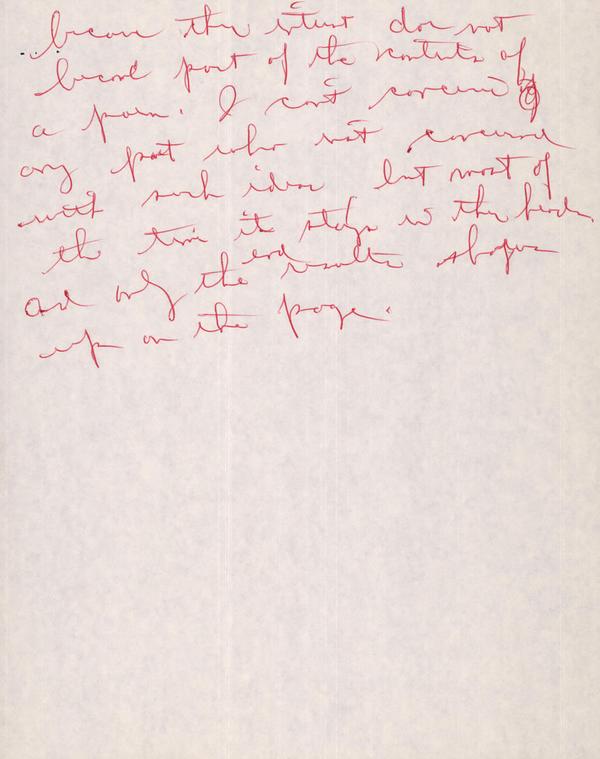 because their interest does not
become part of the contents of
a poem. I can't conceive of
any poet who isn't concerned
with such ideas but most of
the time it stays in the
and only the end results shapes
up on the page.